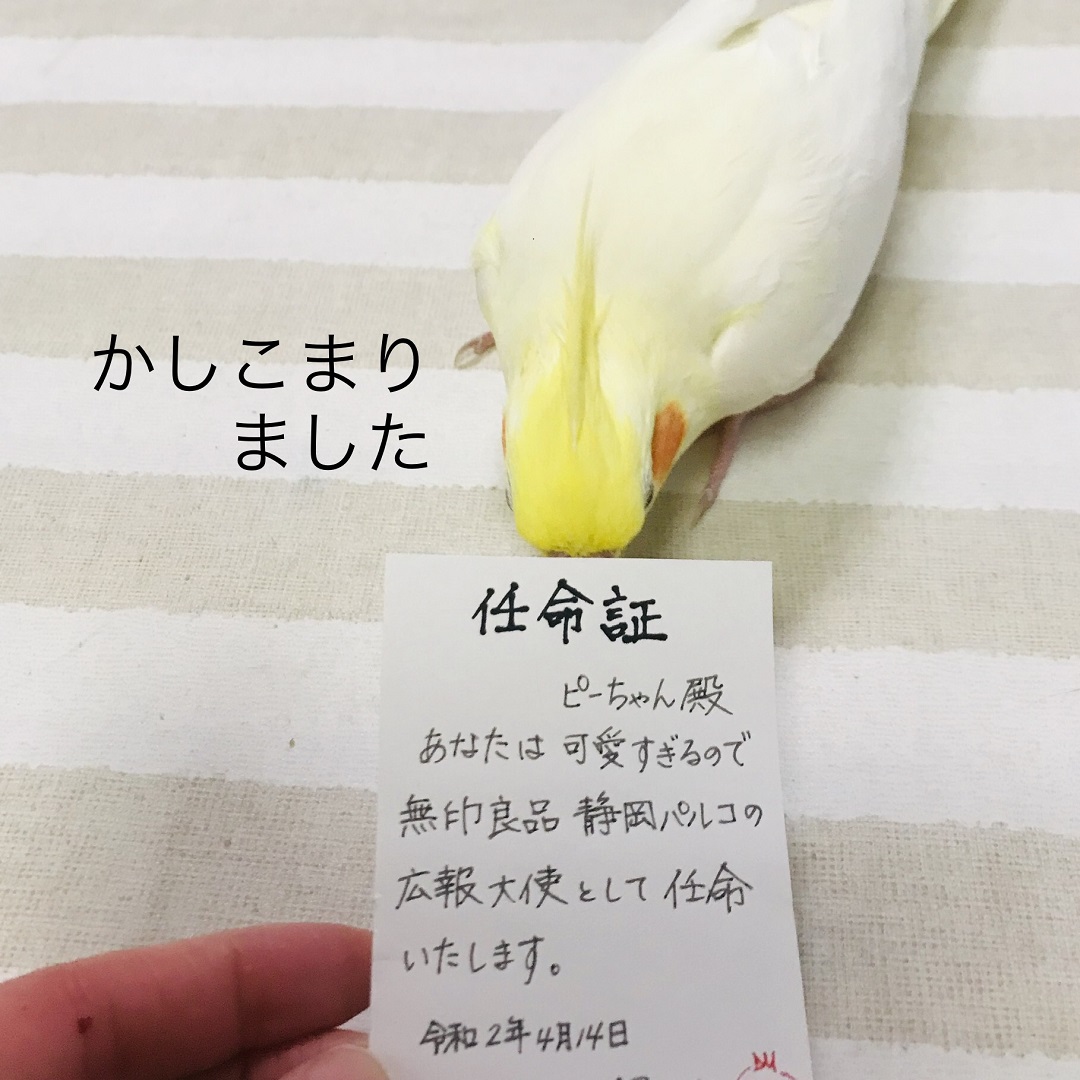 かしこまり
ました
任命証
ピーちゃん殿
あなたは可愛すぎるので
無印良品 静岡パルコの
広報大使として任命
いたします。
令和2年4月14日